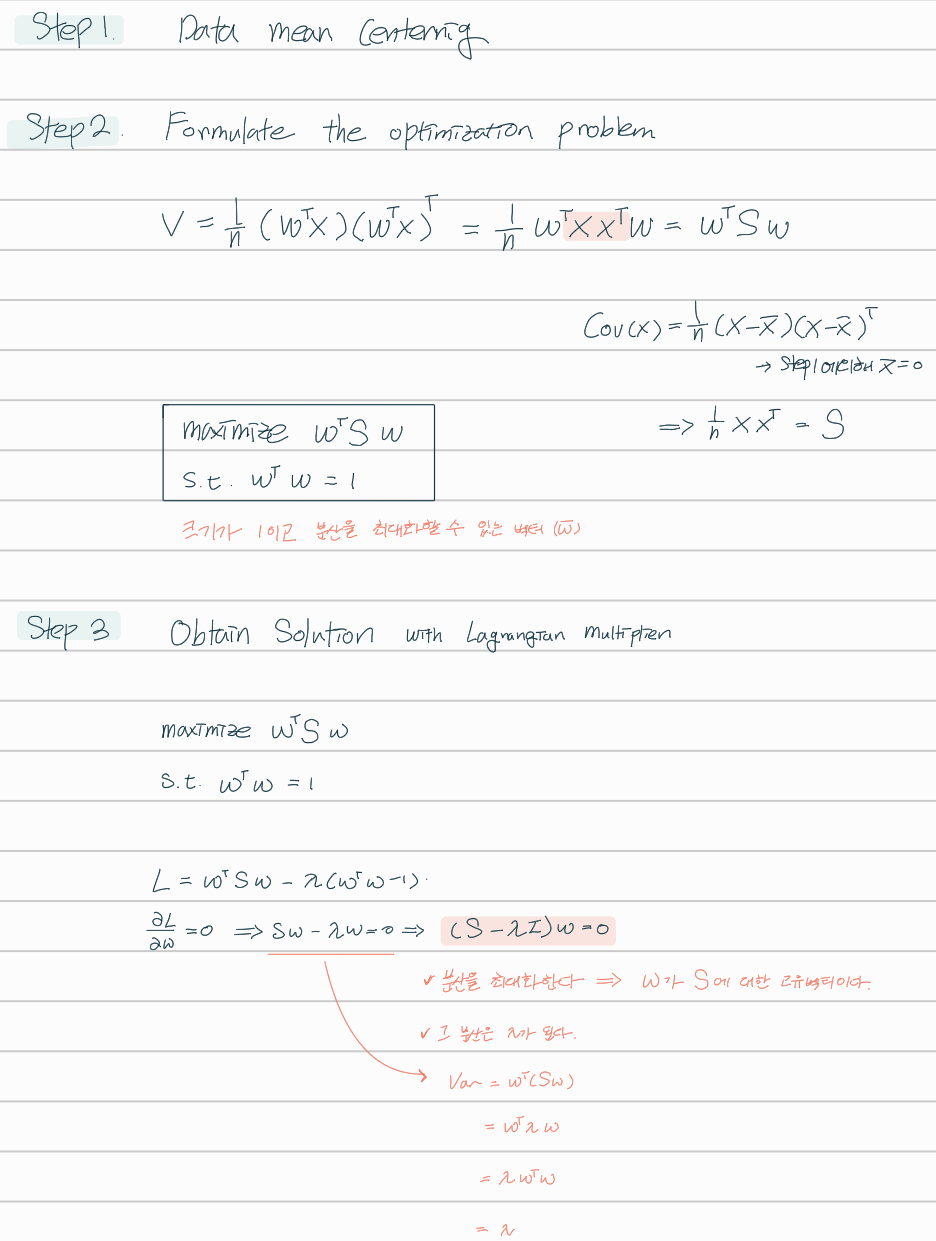 Step 1. Data mean Centering
Step 2. Formulate the optimization problem
V = 1/n (wᵀX)(wᵀX)ᵀ = 1/n wᵀXXᵀw = wᵀSw
Cov(X) = 1/n (X-X̄)(X-X̄)ᵀ
→ Step1에 의해 X̄=0
⇒ 1/n XXᵀ = S
maximize wᵀSw
s.t. wᵀw = 1
크기가 1이고 분산을 최대화할 수 있는 벡터 (w̄)
Step 3 Obtain Solution with Lagrangian Multiplier
maximize wᵀSw
s.t. wᵀw = 1
L = wᵀSw - λ(wᵀw - 1).
∂L/∂w = 0 ⇒ Sw - λw = 0 ⇒ (S - λI)w = 0
✓ 분산을 최대화한다 ⇒ w가 S에 대한 고유벡터이다.
✓ 그 분산은 λ가 된다.
Var = wᵀ(Sw)
= wᵀλw
= λwᵀw
= λ